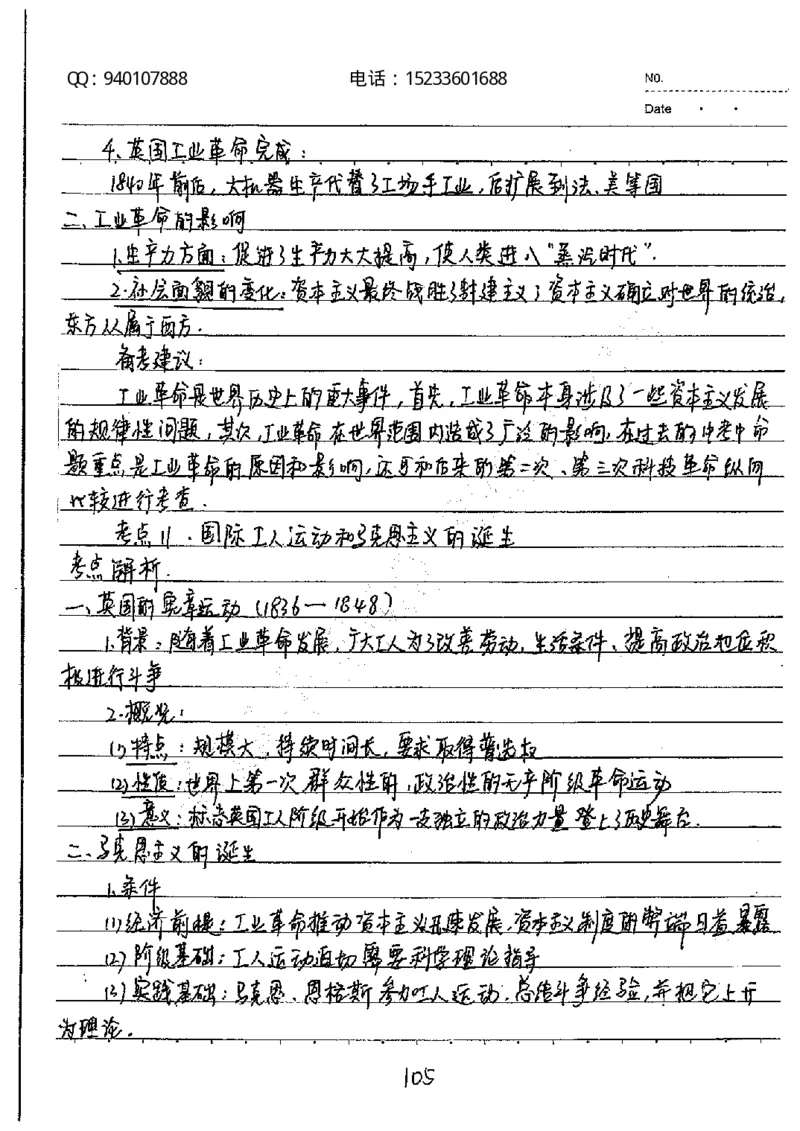 QQ：940107888 电话：15233601688 NO.
Date
4、英国工业革命完成：
1840年前后，大机器生产代替了工场手工业，后扩展到法、美等国
二、工业革命的影响
1.生产力方面：促进了生产力大大提高，使人类进入“蒸汽时代”.
2.社会面貌的变化：资本主义最终战胜了封建主义，资本主义确立对世界的统治，
东方从属于西方.
备考建议：
工业革命是世界历史上的重大事件，首先，工业革命本身涉及了一些资本主义发展
的规律性问题，其次，工业革命在世界范围内造成了广泛的影响，在过去的中考中命
题重点是工业革命的原因和影响，还可和后来的第二次、第三次科技革命纵向
比较进行考查.
考点11.国际工人运动和马克思主义的诞生
考点解析.
一、英国的宪章运动（1836—1848）
1.背景：随着工业革命发展，广大工人为了改善劳动、生活条件、提高政治地位积
极进行斗争
2.概况：
(1)特点：规模大，持续时间长，要求取得普选权
(2)性质：世界上第一次群众性的，政治性的无产阶级革命运动
(3)意义：标志英国工人阶级开始作为一支独立的政治力量登上了历史舞台.
二、马克思主义的诞生
1.条件
(1)经济前提：工业革命推动资本主义迅速发展，资本主义制度的弊端日益暴露
(2)阶级基础：工人运动迫切需要科学理论指导
(3)实践基础：马克思、恩格斯参加工人运动，总结斗争经验，并把它上升
为理论.
105